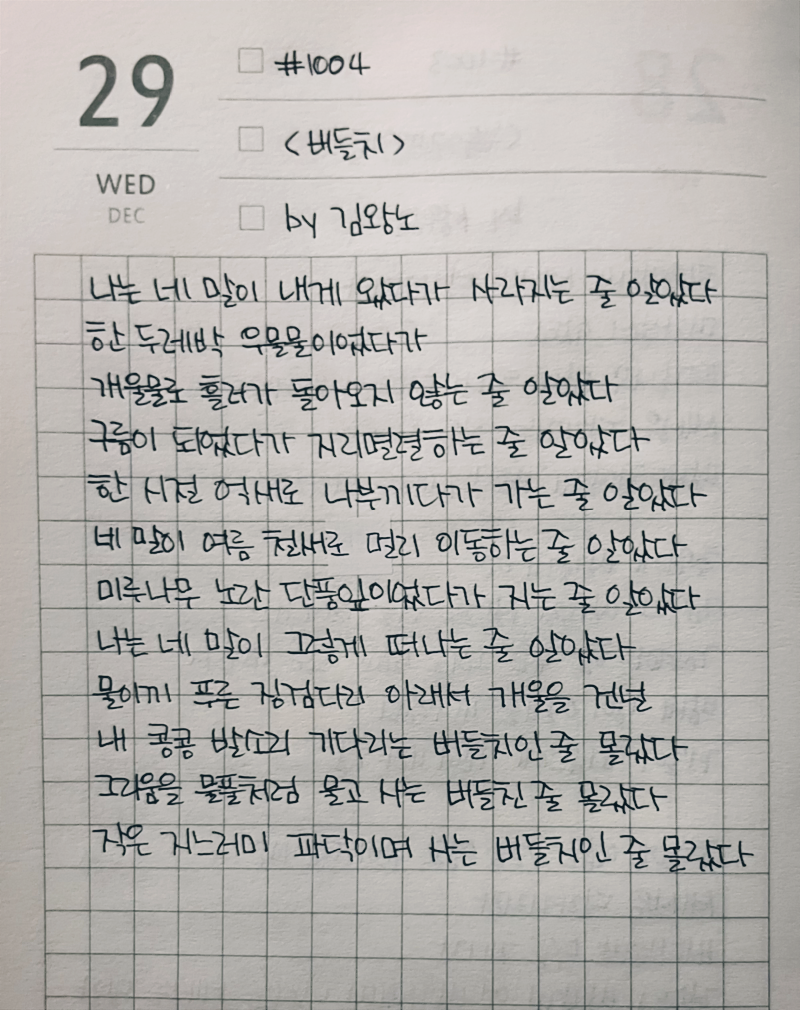 29
WED
DEC
#1004
<버들치>
by 김왕노
나는 네 말이 내게 왔다가 사라지는 줄 알았다
한 두레박 우물물이었다가
개울물로 흘러가 돌아오지 않는 줄 알았다
구름이 되었다가 지리멸렬하는 줄 알았다
한 시절 억새로 나부끼다가 가는 줄 알았다
네 말이 여름 철새로 멀리 이동하는 줄 알았다
미루나무 노란 단풍잎이었다가 지는 줄 알았다
나는 네 말이 그렇게 떠나는 줄 알았다
물이끼 푸른 징검다리 아래서 개울을 건널
내 콩콩 발소리 기다리는 버들치인 줄 몰랐다
그리움을 물풀처럼 물고 사는 버들친 줄 몰랐다
작은 지느러미 파닥이며 사는 버들치인 줄 몰랐다